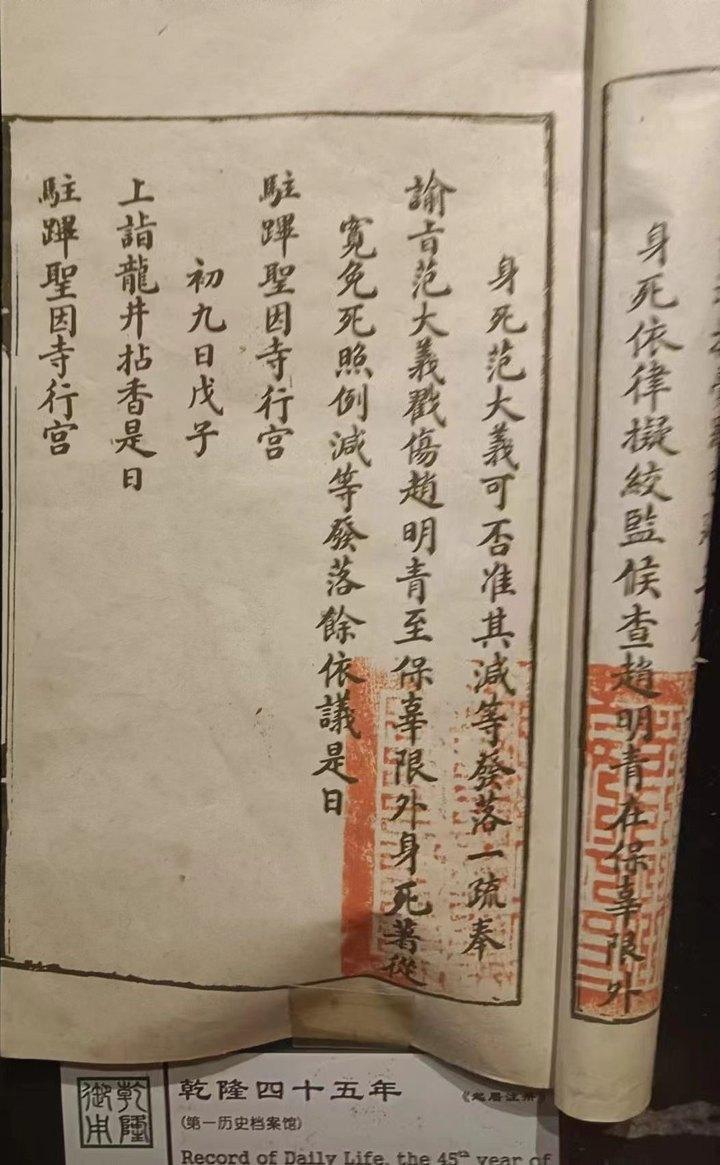 身死依律擬絞監候查趙明青在保辜限外
身死范大義可否准其減等發落一疏奉
諭旨范大義戳傷趙明青至保辜限外身死著從
寬免死照例減等發落餘依議是日
駐蹕聖因寺行宮
初九日戊子
上詣龍井拈香是日
駐蹕聖因寺行宮
乾隆御用
乾隆四十五年
《起居注册》
(第一历史档案馆)
Record of Daily Life, the 45th year of